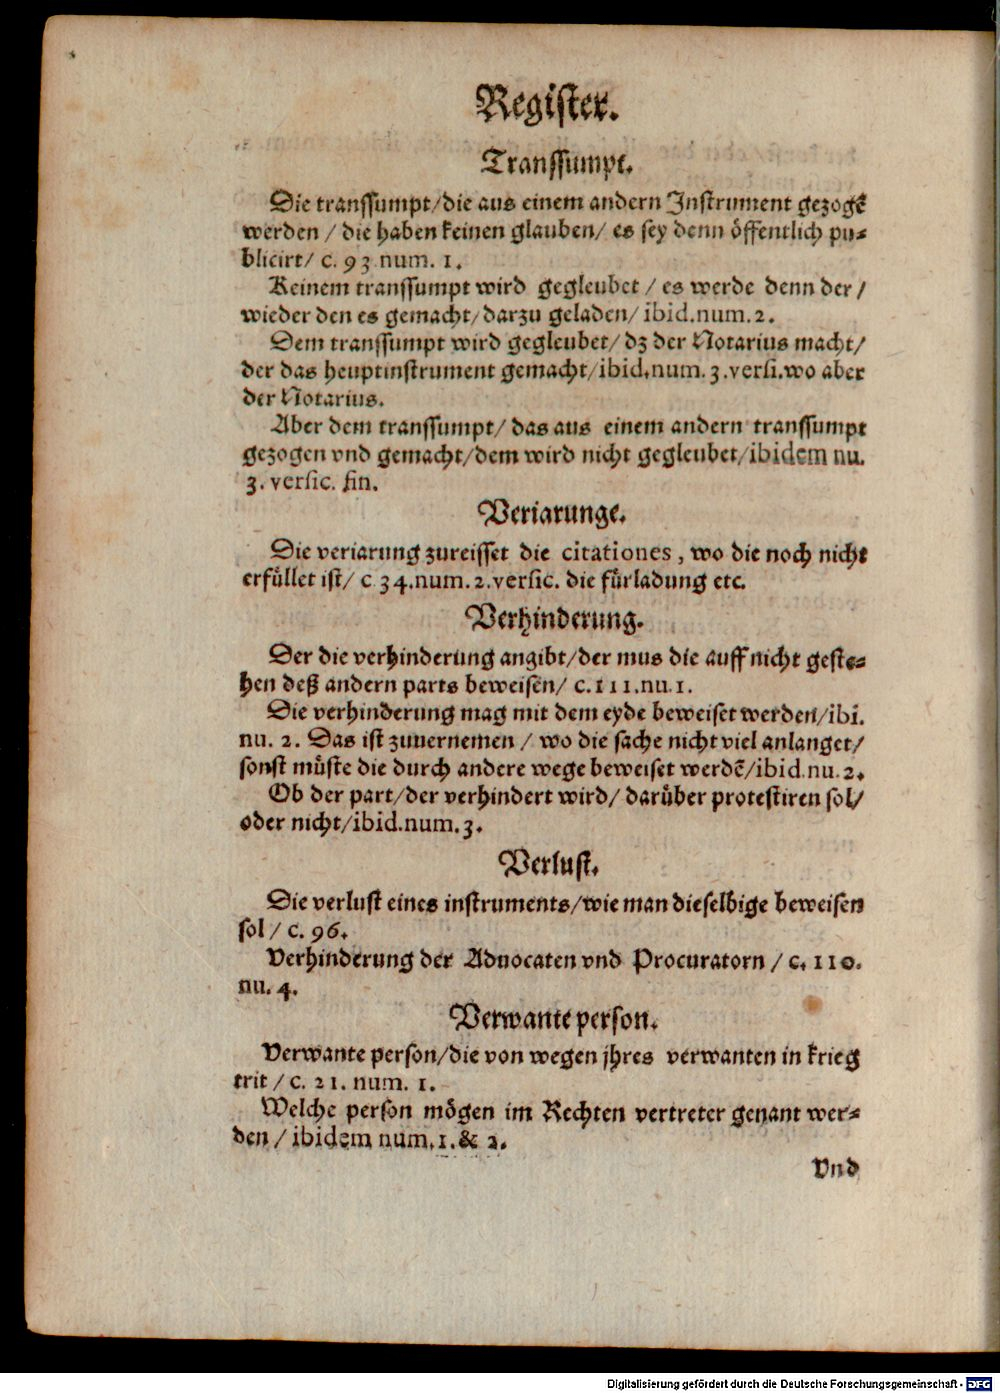 Register.
Transsumpt.
Die transsumpt/die aus einem andern Instrument gezogē
werden / die haben keinen glauben/ es sey denn öffentlich pu-
blicirt/ c. 93 num. 1.
Keinem transsumpt wird gegleubet / es werde denn der /
wieder den es gemacht/darzu geladen/ ibid.num.2.
Dem transsumpt wird gegleubet/ dz der Notarius macht/
der das heuptinstrument gemacht/ibid.num.3.versi.wo aber
der Notarius.
Aber dem transsumpt/ das aus einem andern transsumpt
gezogen vnd gemacht/dem wird nicht gegleubet/ibidem nu.
3. versic. fin.
Veriarunge.
Die veriarung zureisset die citationes, wo die noch nicht
erfüllet ist/ c 34.num.2.versic. die fürladung etc.
Verhinderung.
Der die verhinderung angibt/der mus die auff nicht geste-
hen deß andern parts beweisen/ c.111.nu.1.
Die verhinderung mag mit dem eyde beweiset werden/ibi.
nu. 2. Das ist zuuernemen / wo die sache nicht viel anlanget/
sonst müste die durch andere wege beweiset werdē/ibid.nu.2.
Ob der part/der verhindert wird/ darüber protestiren sol/
oder nicht/ibid.num.3.
Verlust.
Die verlust eines instruments/wie man dieselbige beweisen
sol / c. 96.
Verhinderung der Aduocaten vnd Procuratorn / c. 110.
nu. 4.
Verwante person.
Verwante person/die von wegen jhres verwanten in krieg
trit / c. 21. num. 1.
Welche person mögen im Rechten vertreter genant wer-
den / ibidem num.1.& 2.
Vnd
Digitalisierung gefördert durch die Deutsche Forschungsgemeinschaft - DFG